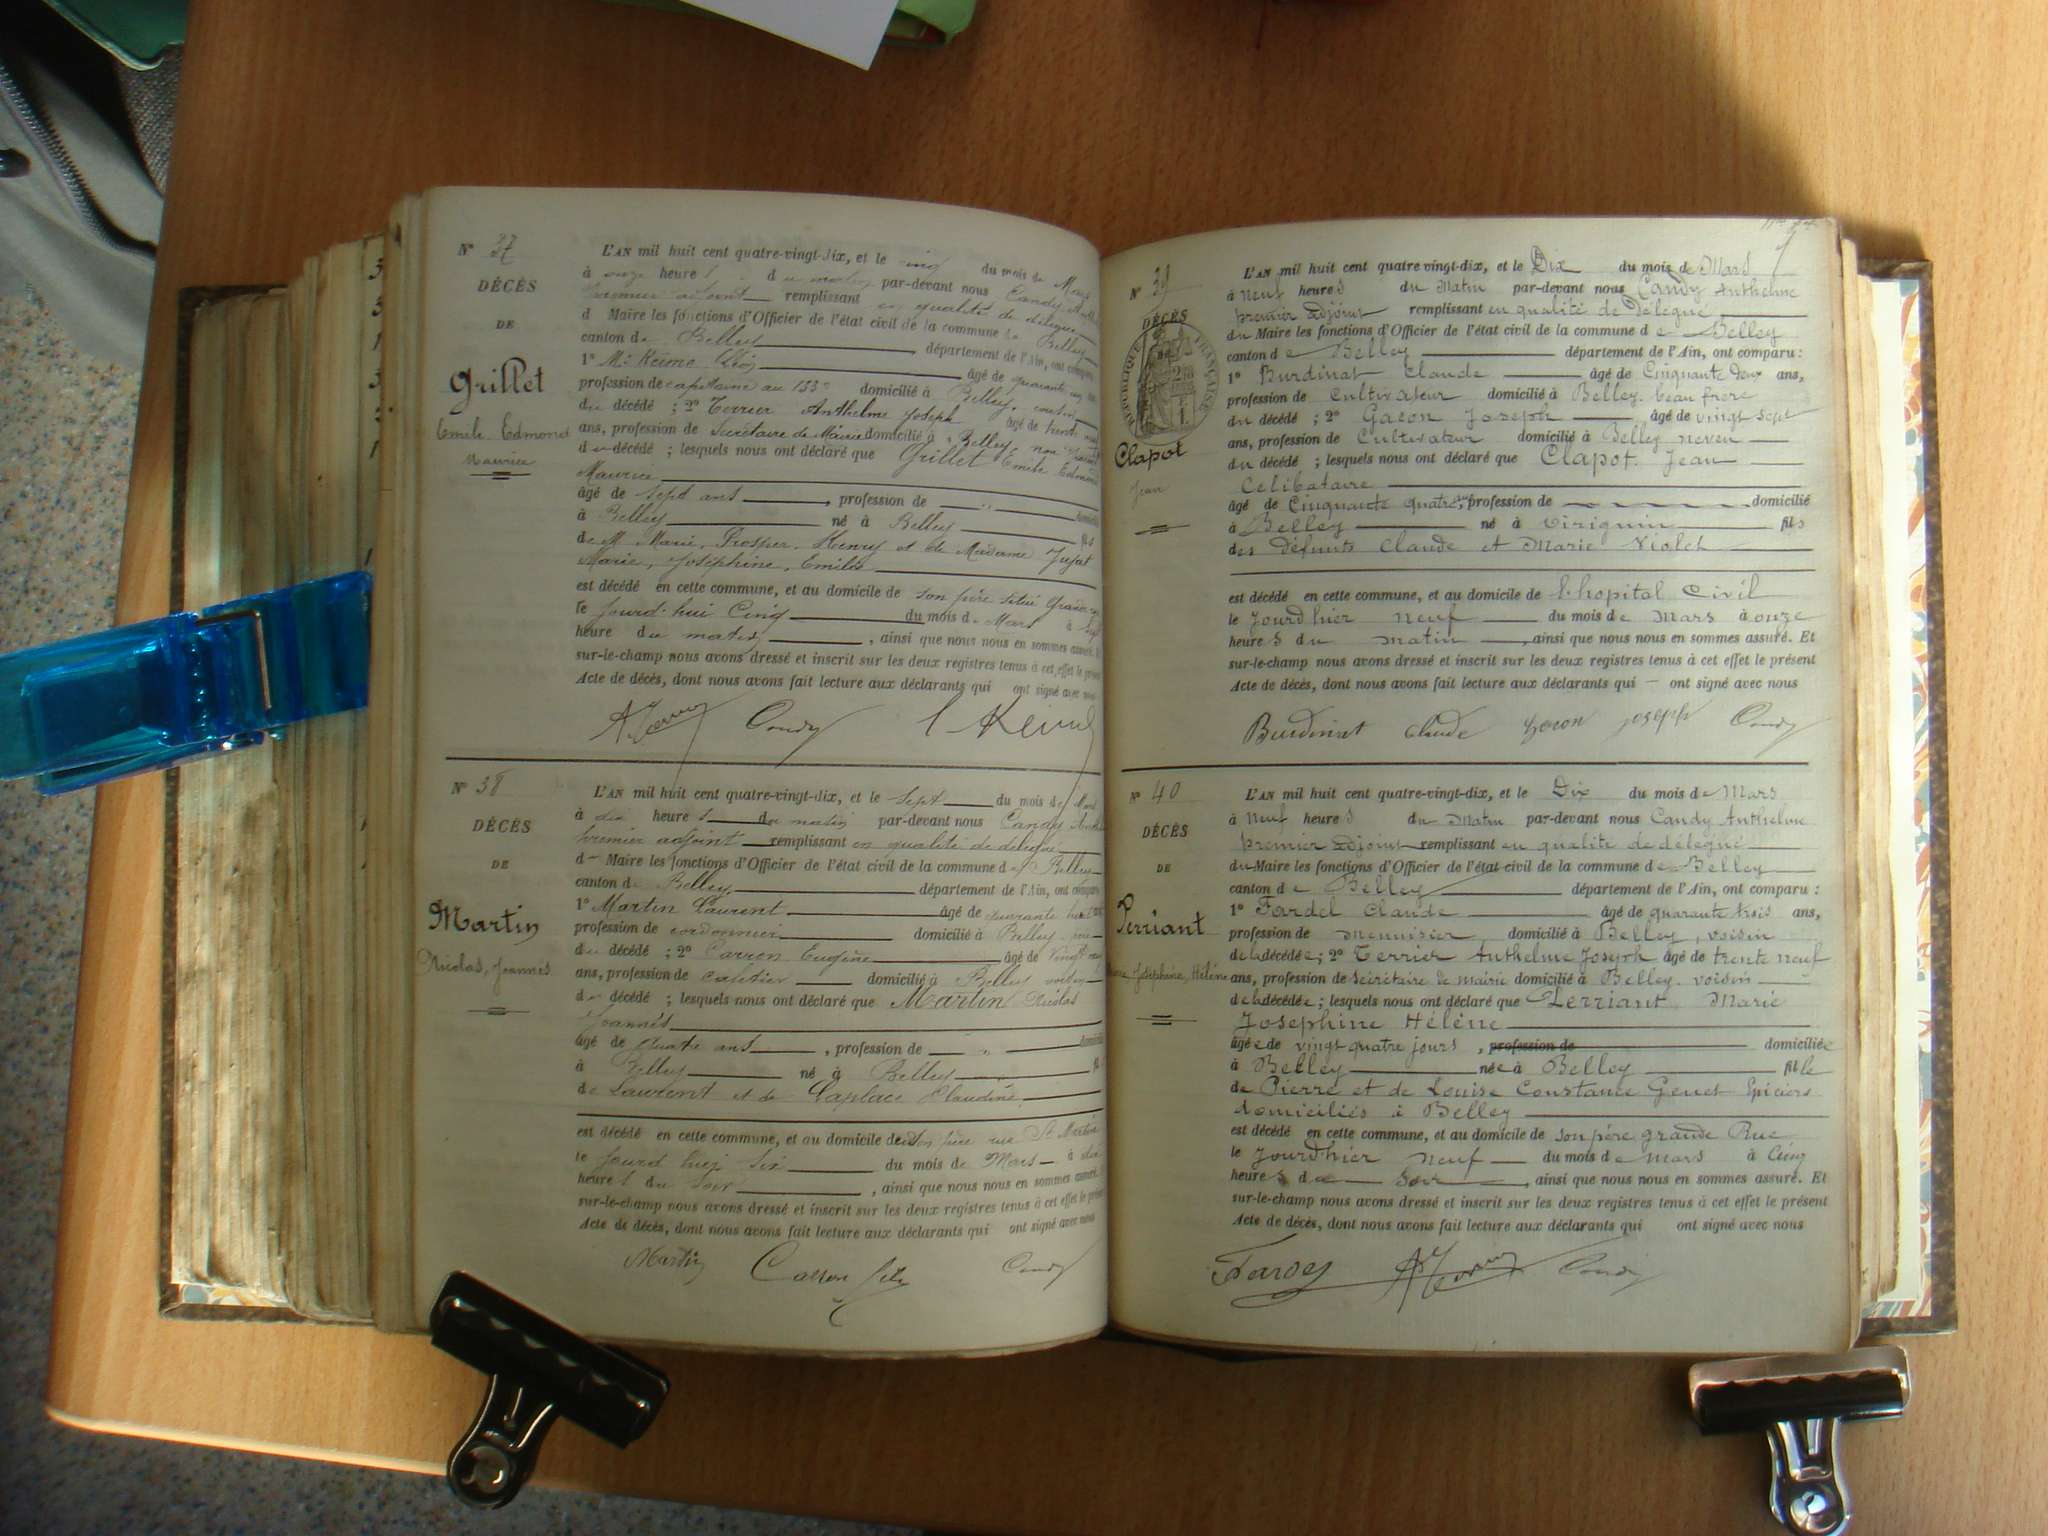 N° 37
DÉCÈS
DE
Grillet
Emile Edmond
Maurice
L'AN mil huit cent quatre-vingt-dix, et le cinq du mois de Mars
à onze heures du matin par-devant nous Candy
premier adjoint remplissant en qualité de délégué
d Maire les fonctions d'Officier de l'état civil de la commune de Belley
canton de Belley département de l'Ain, ont comparu
1° Mr Keime Léon âgé de quarante
profession de capitaine au 133e domicilié à Belley, cousin
du décédé ; 2° Terrier Anthelme Joseph âgé de trente neuf
ans, profession de Secrétaire de Mairie domicilié à Belley, non parent
du décédé ; lesquels nous ont déclaré que Grillet Emile Edmond
Maurice
âgé de sept ans, profession de " domicilié
à Belley né à Belley fils
de M. Marie, Prosper, Henry et de Madame
Marie, Joséphine, Emilie
est décédé en cette commune, et au domicile de son père situé Grande
le Jourd'hui Cinq du mois de Mars à
heure du matin, ainsi que nous nous en sommes assuré. Et
sur-le-champ nous avons dressé et inscrit sur les deux registres tenus à cet effet le présent
Acte de décès, dont nous avons fait lecture aux déclarants qui ont signé avec nous
A. Terrier Candy L Keime
N° 38
DÉCÈS
DE
Martin
Nicolas, Joannès
L'AN mil huit cent quatre-vingt-dix, et le sept du mois de Mars
à dix heures du matin par-devant nous Candy
premier adjoint remplissant en qualité de délégué
d Maire les fonctions d'Officier de l'état civil de la commune de Belley
canton de Belley département de l'Ain, ont comparu
1° Martin Laurent âgé de quarante huit ans
profession de cordonnier domicilié à Belley père
du décédé ; 2° Carron Eugène âgé de vingt
ans, profession de cafetier domicilié à Belley voisin
du décédé ; lesquels nous ont déclaré que Martin Nicolas
Joannès
âgé de quatre ans, profession de " domicilié
à Belley né à Belley fil
de Laurent et de Laplace Claudine
est décédé en cette commune, et au domicile de son père rue St Martin
le Jourd'hui Six du mois de Mars à
heures du soir, ainsi que nous nous en sommes assuré. Et
sur-le-champ nous avons dressé et inscrit sur les deux registres tenus à cet effet le présent
Acte de décès, dont nous avons fait lecture aux déclarants qui ont signé avec nous
Martin Carron Candy
N° 39
DÉCÈS
DE
RÉPUBLIQUE FRANÇAISE
Clapot
Jean
L'AN mil huit cent quatre-vingt-dix, et le Dix du mois de Mars
à neuf heures du Matin par-devant nous Candy Anthelme
premier adjoint remplissant en qualité de Délégué
du Maire les fonctions d'Officier de l'état civil de la commune de Belley
canton de Belley département de l'Ain, ont comparu :
1° Burdinat Claude âgé de Cinquante deux ans,
profession de Cultivateur domicilié à Belley beau frère
du décédé ; 2° Gacon Joseph âgé de vingt sept
ans, profession de Cultivateur domicilié à Belley neveu
du décédé ; lesquels nous ont déclaré que Clapot Jean
Celibataire
âgé de Cinquante quatre ans, profession de domicilié
à Belley né à Virignin fils
des Défunts Claude et Marie Violet
est décédé en cette commune, et au domicile de l'hopital Civil
le Jourdhier neuf du mois de Mars à onze
heures du matin, ainsi que nous nous en sommes assuré. Et
sur-le-champ nous avons dressé et inscrit sur les deux registres tenus à cet effet le présent
Acte de décès, dont nous avons fait lecture aux déclarants qui ont signé avec nous
Burdinat Claude Gacon Joseph Candy
N° 40
DÉCÈS
DE
Perriant
Marie Joséphine, Hélène
L'AN mil huit cent quatre-vingt-dix, et le Dix du mois de Mars
à neuf heures du Matin par-devant nous Candy Anthelme
premier adjoint remplissant en qualité de délégué
du Maire les fonctions d'Officier de l'état civil de la commune de Belley
canton de Belley département de l'Ain, ont comparu :
1° Fardel Claude âgé de quarante trois ans,
profession de menuisier domicilié à Belley, voisin
de la décédée ; 2° Terrier Anthelme Joseph âgé de trente neuf
ans, profession de secrétaire de mairie domicilié à Belley voisin
de la décédée ; lesquels nous ont déclaré que Perriant Marie
Josephine Hélène
âgée de vingt quatre jours, profession de domiciliée
à Belley née à Belley fille
de Pierre et de Louise Constance Genet Epiciers
domiciliés à Belley
est décédé en cette commune, et au domicile de son père grande Rue
le Jourdhier neuf du mois de mars à Cinq
heures de Soir, ainsi que nous nous en sommes assuré. Et
sur-le-champ nous avons dressé et inscrit sur les deux registres tenus à cet effet le présent
Acte de décès, dont nous avons fait lecture aux déclarants qui ont signé avec nous
Fardel A. Terrier Candy